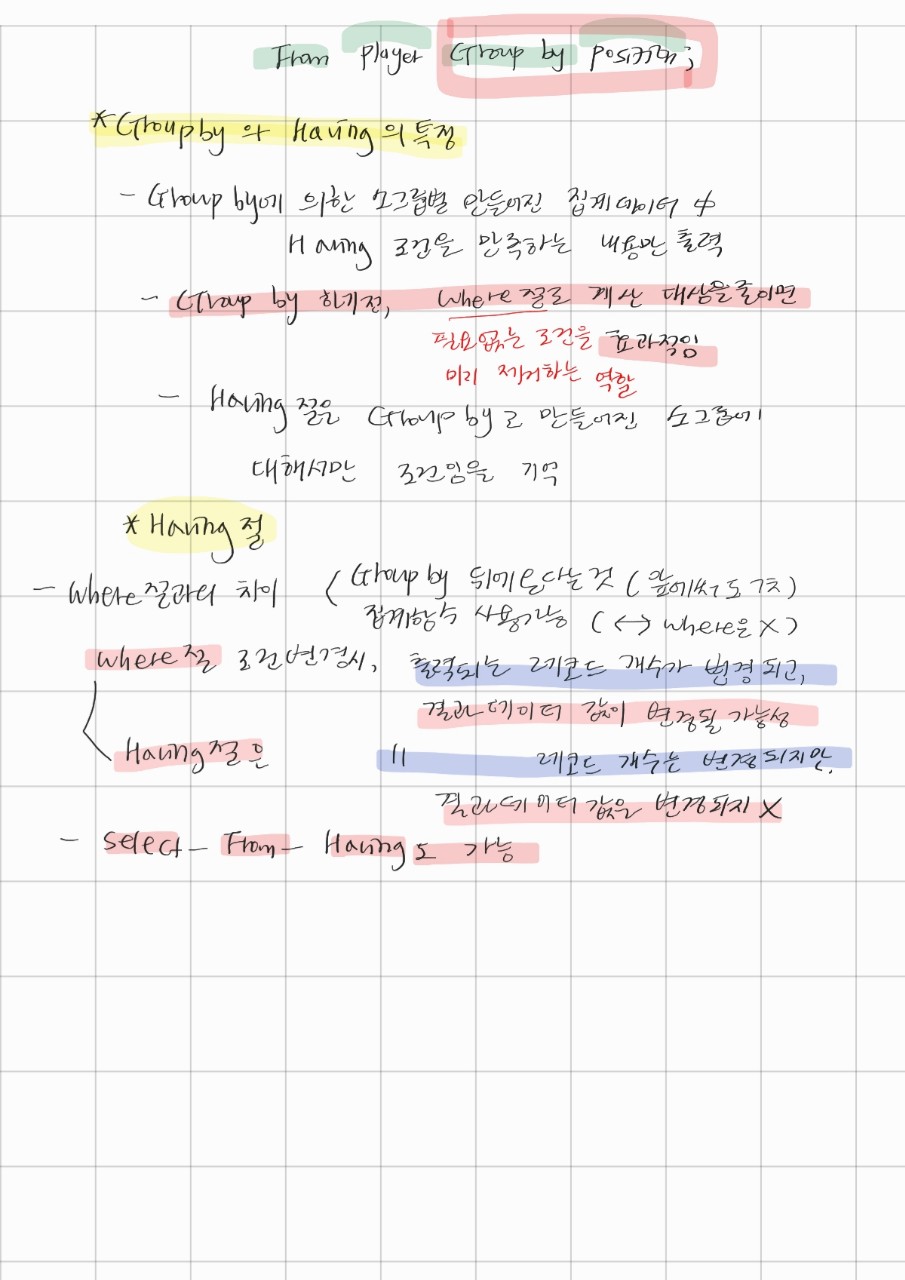 From Player Group by Position;
*Group by 와 Having의 특징
- Group by에 의한 소그룹별 만들어진 집계데이터 中
Having 조건을 만족하는 내용만 출력
- Group by 하기전, Where 절로 계산 대상을줄이면
필요없는 조건을 효과적임
미리 제거하는 역할
- Having 절은 Group by로 만들어진 소그룹에
대해서만 조건임을 기억
*Having 절
- Where절과의 차이 ( Group by 뒤에온다는것 (앞에써도 가능)
집계함수 사용가능 (↔ where은 X)
where절 조건변경시, 출력되는 레코드 개수가 변경되고,
결과데이터 값이 변경될 가능성
Having절은 〃 레코드 개수는 변경되지만,
결과데이터 값은 변경되지 X
- Select - From - Having도 가능